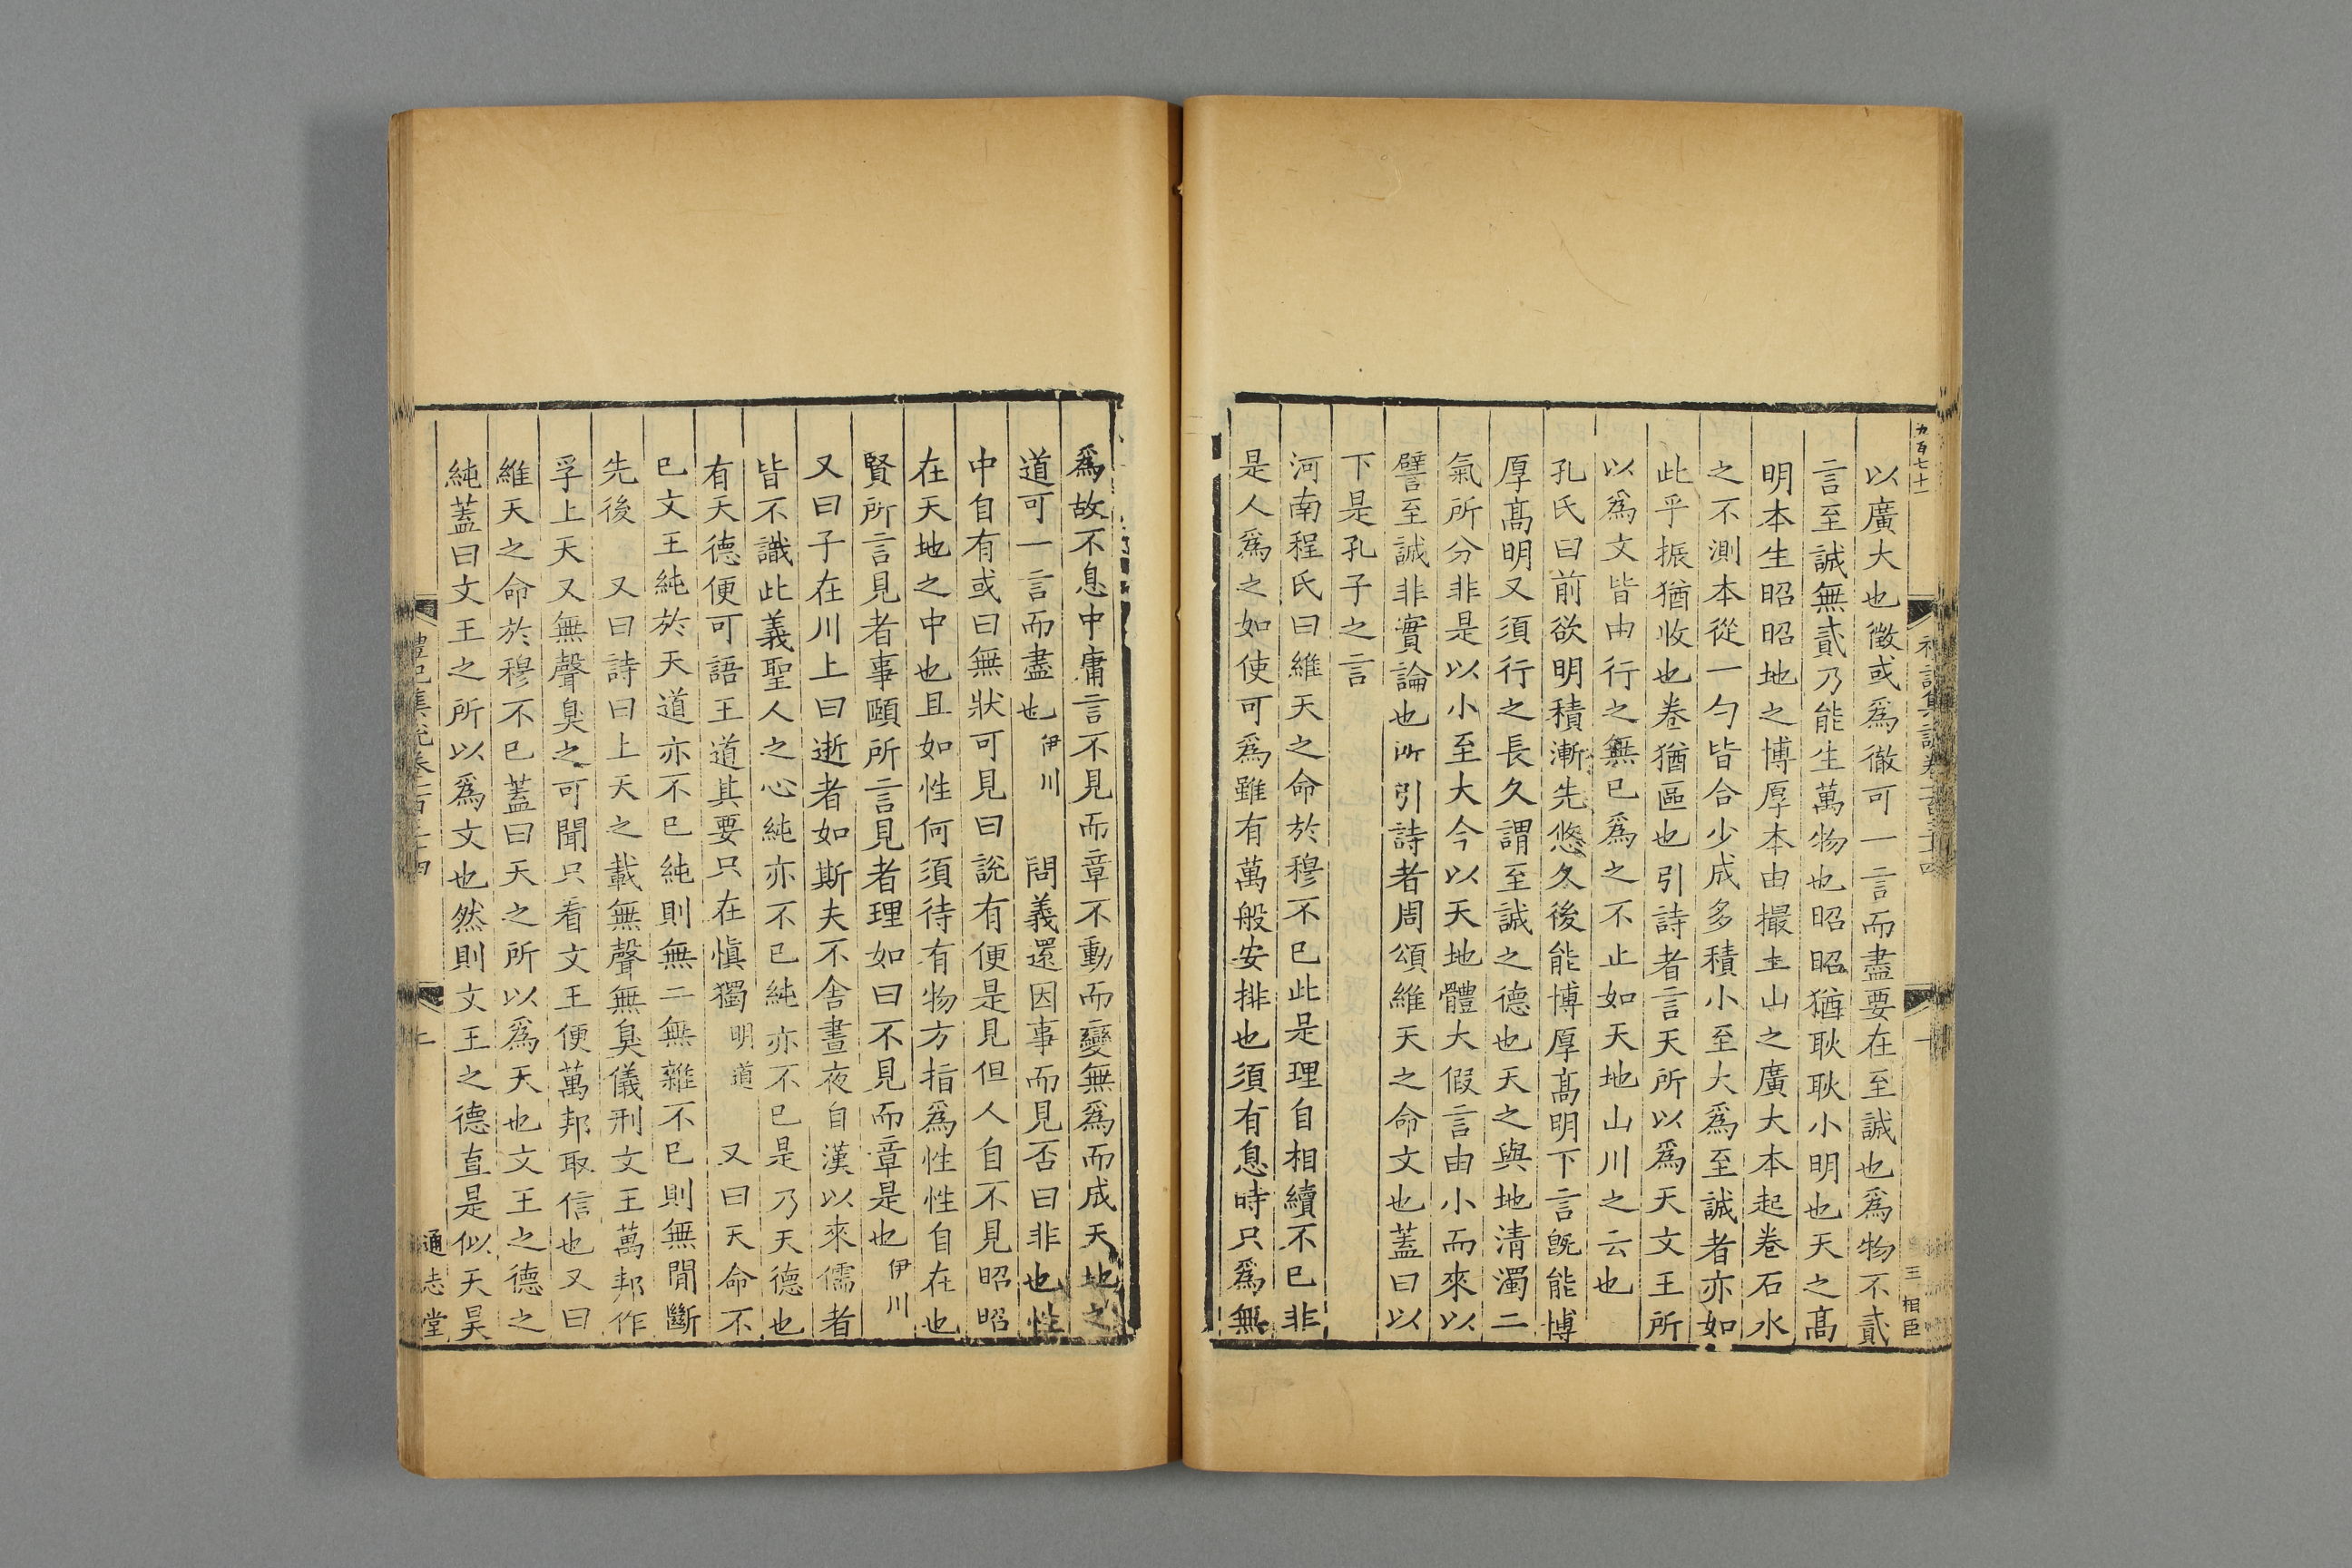 九百七十一
以廣大也徴或爲徹可一言而盡要在至誠也爲物不貳
言至誠無貳乃能生萬物也昭昭猶耿耿小明也天之髙
明本生昭昭地之博厚本由撮土山之廣大本起卷石水
之不測本從一勺皆合少成多積小至大爲至誠者亦如
此乎振猶收也卷猶區也引詩者言天所以爲天文王所
以爲文皆由行之無已爲之不止如天地山川之云也
孔氏曰前欲明積漸先悠久後能博厚髙明下言旣能博
厚髙明又須行之長久謂至誠之德也天之與地清濁二
氣所分非是以小至大今以天地體大假言由小而來以
譬至誠非實論也所引詩者周頌維天之命文也蓋曰以
下是孔子之言
河南程氏曰維天之命於穆不已此是理自相續不已非
是人爲之如使可爲雖有萬般安排也須有息時只爲無
三 相臣
爲故不息中庸言不見而章不動而變無爲而成天地之
道可一言而盡也伊川 問義還因事而見否曰非也性
中自有或曰無狀可見曰說有便是見但人自不見昭昭
在天地之中也且如性何須待有物方指爲性性自在也
賢所言見者事頤所言見者理如曰不見而章是也伊川
又曰子在川上曰逝者如斯夫不舍晝夜自漢以來儒者
皆不識此義聖人之心純亦不已純亦不已是乃天德也
有天德便可語王道其要只在愼獨明道 又曰天命不
已文王純於天道亦不已純則無二無雜不已則無閒斷
先後 又曰詩曰上天之載無聲無臭儀刑文王萬邦作
孚上天又無聲臭之可聞只看文王便萬邦取信也又曰
維天之命於穆不已蓋曰天之所以爲天也文王之德之
純蓋曰文王之所以爲文也然則文王之德直是似天昊
通志堂